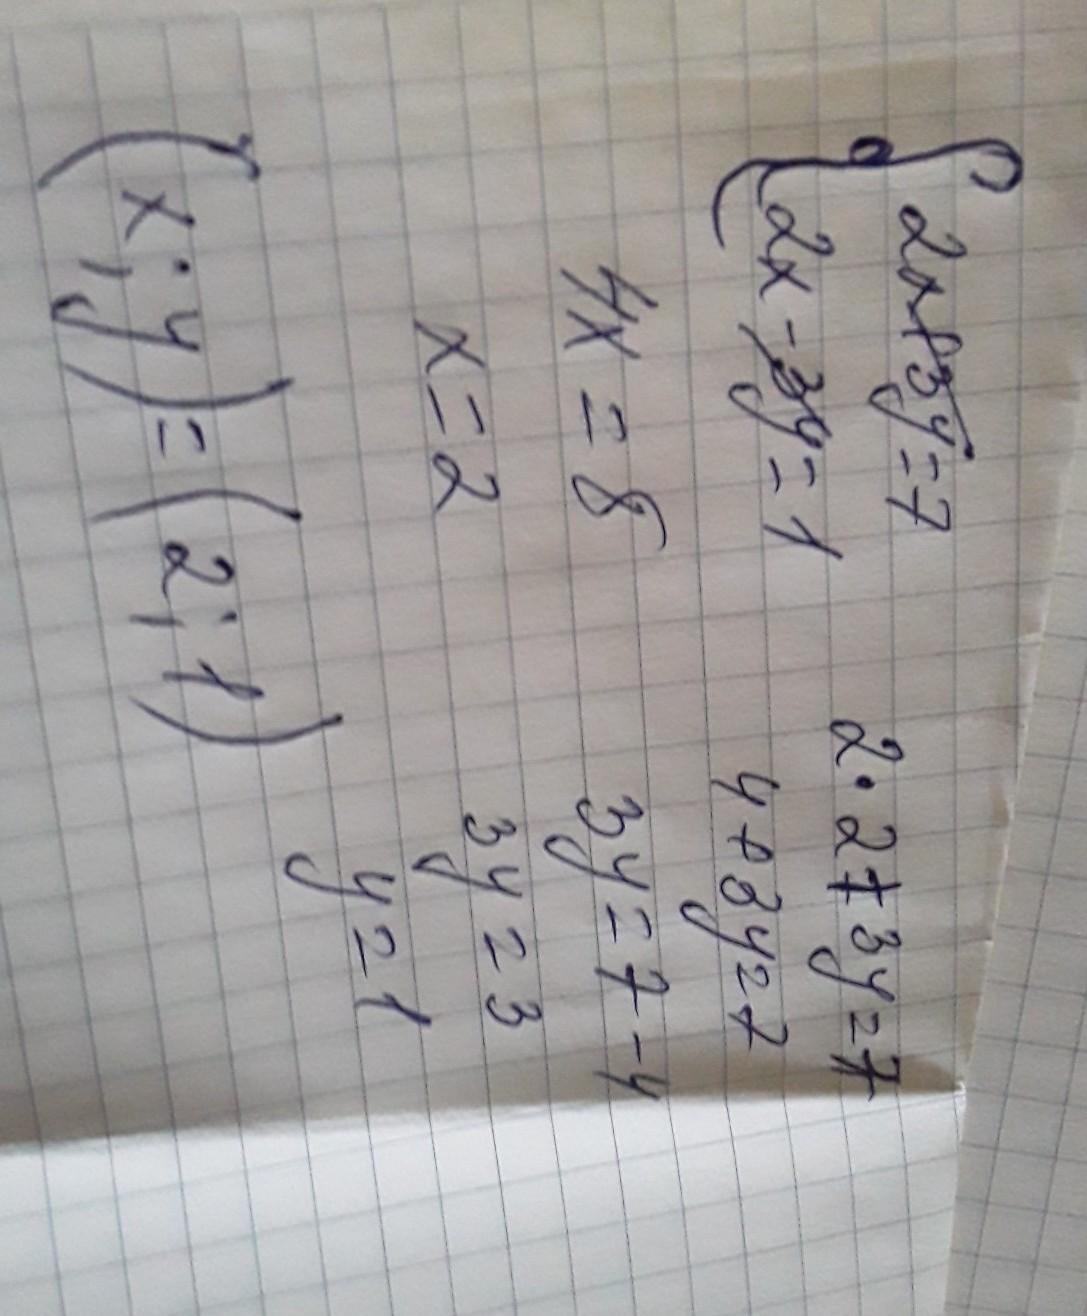 2x+3y=7
2x-3y=1
4x=8
x=2
2·2+3y=7
4+3y=7
3y=7-4
3y=3
y=1
(x;y)=(2;1)